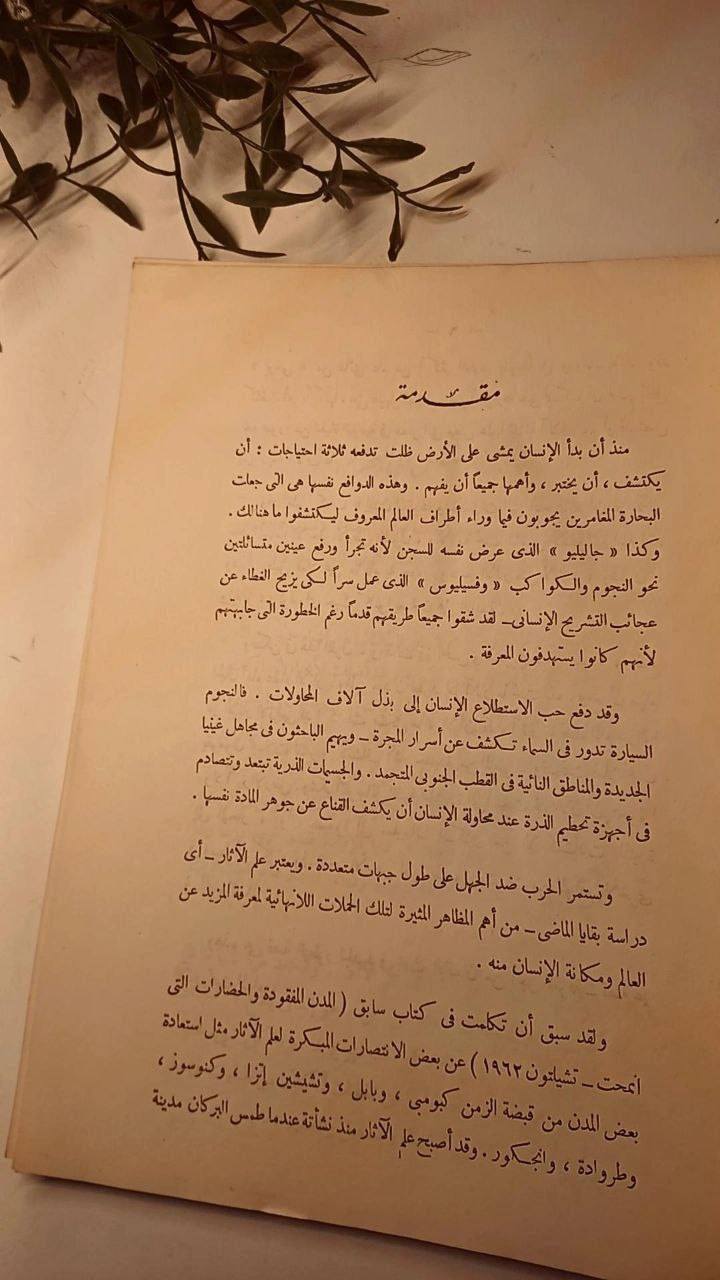 مقدمة
منذ أن بدأ الإنسان يمشى على الأرض ظلت تدفعه ثلاثة احتياجات : أن
يكتشف ، أن يختبر ، وأهمها جميعاً أن يفهم . وهذه الدوافع نفسها هى التى جعلت
البحارة المغامرين يجوبون فيما وراء أطراف العالم المعروف ليكتشفوا ما هنالك .
وكذا « جاليليو » الذى عرض نفسه للسجن لأنه تجرأ ورفع عينين متسائلتين
نحو النجوم والكواكب « وفسيليوس » الذى عمل سراً لكى يزيح الغطاء عن
عجائب التشريح الإنسانى – لقد شقوا جميعاً طريقهم قدماً رغم الخطورة التى جابهتهم
لأنهم كانوا يستهدفون المعرفة .
وقد دفع حب الاستطلاع الإنسان إلى بذل آلاف المحاولات . فالنجوم
السيارة تدور فى السماء تكشف عن أسرار المجرة – ويهيم الباحثون فى مجاهل غينيا
الجديدة والمناطق النائية فى القطب الجنوبى المتجمد . والجسيمات الذرية تبتعد وتتصادم
فى أجهزة تحطيم الذرة عند محاولة الإنسان أن يكشف القناع عن جوهر المادة نفسها .
وتستمر الحرب ضد الجهل على طول جبهات متعددة . ويعتبر علم الآثار – أى
دراسة بقايا الماضى – من أهم المظاهر المثيرة لتلك الحملات اللانهائية لمعرفة المزيد عن
العالم ومكانة الإنسان منه .
ولقد سبق أن تكلمت فى كتاب سابق ( المدن المفقودة والحضارات التى
انمحت – تشيلتون ١٩٦٢ ) عن بعض الانتصارات المبكرة لعلم الآثار مثل استعادة
بعض المدن من قبضة الزمن كبومبى ، وبابل ، وتشيشين إتزا ، وكنوسوز ،
وطروادة ، وانجكور . وقد أصبح علم الآثار منذ نشأتة عندما طمس البركان مدينة